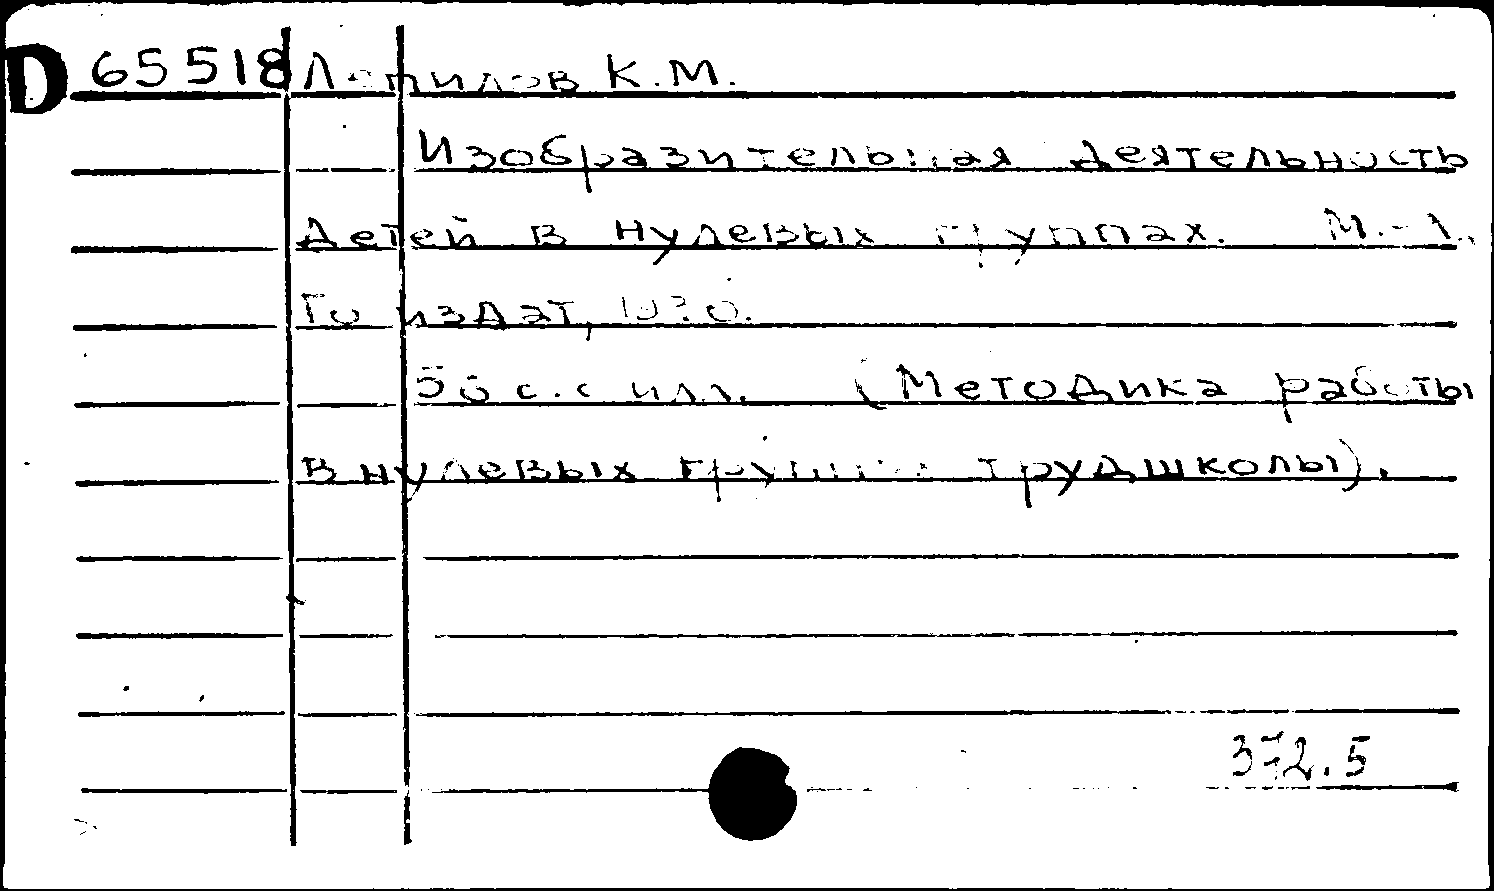 D 65518 Лепилов К.М.
Изобразительная деятельность
детей в нулевых группах. М.-Л.,
Госиздат, 1930.
56 с. с илл. (Методика работы
в нулевых группах трудшколы).
372.5